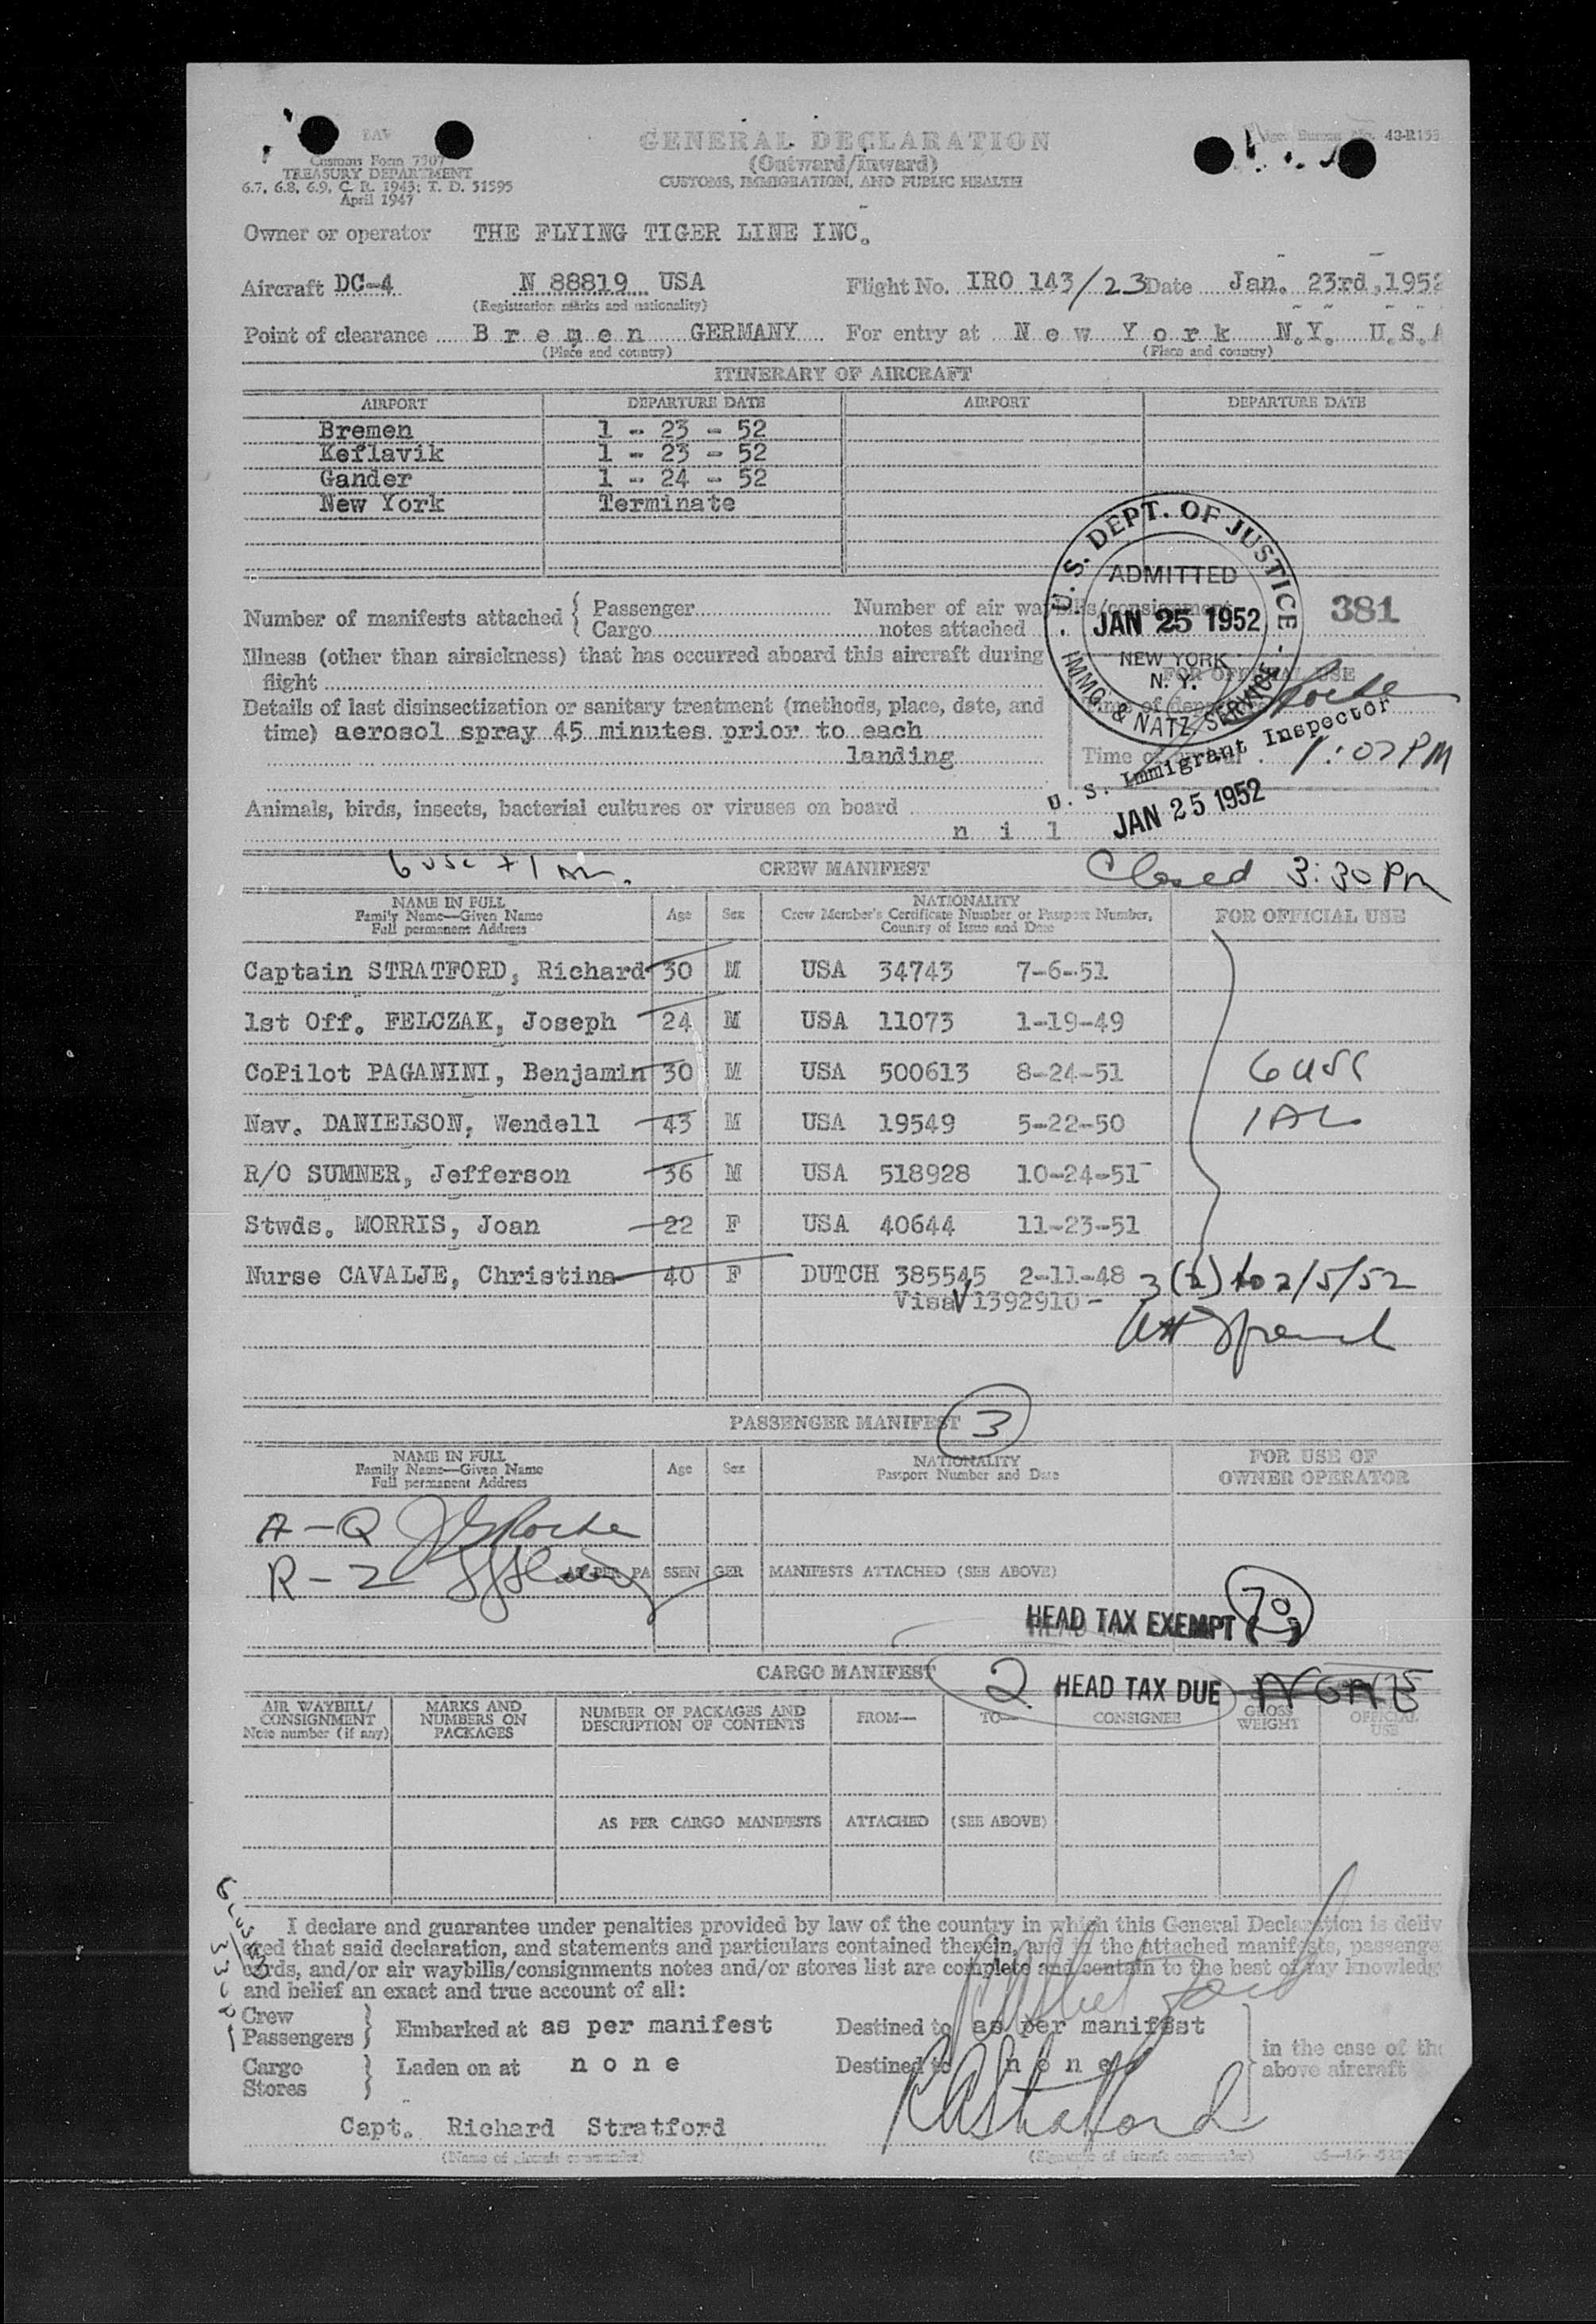 GENERAL DECLARATION
(Outward/Inward)
CUSTOMS, IMMIGRATION, AND PUBLIC HEALTH
Customs Form 7507
TREASURY DEPARTMENT
6.7, 6.8, 6.9, C. R. 1943; T. D. 51595
April 1947
43-R153
Owner or operator THE FLYING TIGER LINE INC.
Aircraft DC-4 N 88819 USA Flight No. IRO 143/23 Date Jan. 23rd, 1952
(Registration marks and nationality)
Point of clearance Bremen GERMANY For entry at New York N.Y. U.S.A
(Place and country) (Place and country)
ITINERARY OF AIRCRAFT
AIRPORT DEPARTURE DATE AIRPORT DEPARTURE DATE
Bremen 1 - 23 - 52
Keflavik 1 - 23 - 52
Gander 1 - 24 - 52
New York Terminate
U.S. DEPT. OF JUSTICE
ADMITTED
JAN 25 1952
NEW YORK
N. Y.
IMMG. & NATZ. SERVICE
Number of manifests attached { Passenger Number of air waybills/consignment 381
Cargo notes attached
Illness (other than airsickness) that has occurred aboard this aircraft during
flight FOR OFFICIAL USE
Details of last disinsectization or sanitary treatment (methods, place, date, and
time) aerosol spray 45 minutes prior to each
landing
Time of 1:07 PM
U. S. Immigrant Inspector
JAN 25 1952
Animals, birds, insects, bacterial cultures or viruses on board
nil
6 usc + 1 AL. CREW MANIFEST Closed 3:30 PM
NAME IN FULL Age Sex NATIONALITY FOR OFFICIAL USE
Family Name—Given Name Crew Member's Certificate Number or Passport Number,
Full permanent Address Country of Issue and Date
Captain STRATFORD, Richard 30 M USA 34743 7-6-51
1st Off. FELCZAK, Joseph 24 M USA 11073 1-19-49
CoPilot PAGANINI, Benjamin 30 M USA 500613 8-24-51 6 USC
Nav. DANIELSON, Wendell 43 M USA 19549 5-22-50 1 AL
R/O SUMNER, Jefferson 36 M USA 518928 10-24-51
Stwds. MORRIS, Joan 22 F USA 40644 11-23-51
Nurse CAVALJE, Christina 40 F DUTCH 385545 2-11-48 3(2) to 2/5/52
Visa 1392910 -
PASSENGER MANIFEST 3
NAME IN FULL Age Sex NATIONALITY FOR USE OF
Family Name—Given Name Passport Number and Date OWNER OPERATOR
Full permanent Address
A-Q
R-Z AS PER PASSENGER MANIFESTS ATTACHED (SEE ABOVE)
HEAD TAX EXEMPT 70
CARGO MANIFEST 2 HEAD TAX DUE NONE
AIR WAYBILL/ MARKS AND NUMBER OF PACKAGES AND FROM— TO— CONSIGNEE GROSS OFFICIAL
CONSIGNMENT NUMBERS ON DESCRIPTION OF CONTENTS WEIGHT USE
Note number (if any) PACKAGES
AS PER CARGO MANIFESTS ATTACHED (SEE ABOVE)
I declare and guarantee under penalties provided by law of the country in which this General Declaration is deliv
ered that said declaration, and statements and particulars contained therein, and in the attached manifests, passenger
cards, and/or air waybills/consignments notes and/or stores list are complete and contain to the best of my knowledg
and belief an exact and true account of all:
Crew
Passengers } Embarked at as per manifest Destined to as per manifest
in the case of the
Cargo } Laden on at none Destined to none above aircraft
Stores
Capt. Richard Stratford RAStratford
(Name of aircraft commander) (Signature of aircraft commander)